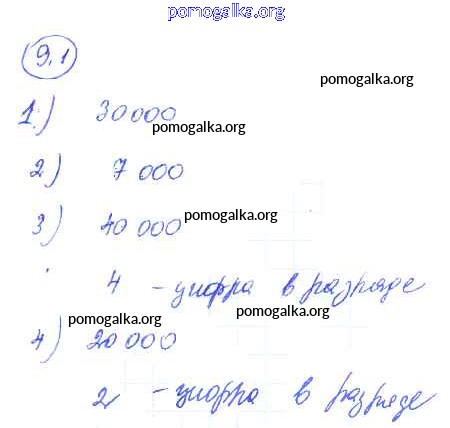 pomogalka.org
9.1
pomogalka.org
1) 30 000
pomogalka.org
2) 7 000
3) 40 000
pomogalka.org
4 - цифра в разряде
pomogalka.org
4) 20 000
2 - цифра в разряде